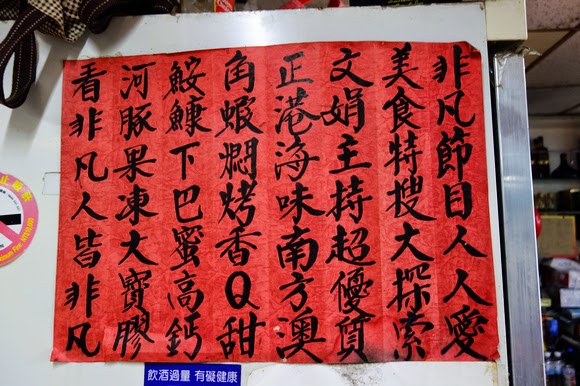 非凡節目人人愛
美食特搜大探索
文娟主持超優質
正港海味南方澳
角蝦燜烤香Q甜
鮟鱇下巴蜜高鈣
河豚果凍大寶膠
看非凡人皆非凡
飲酒過量 有礙健康